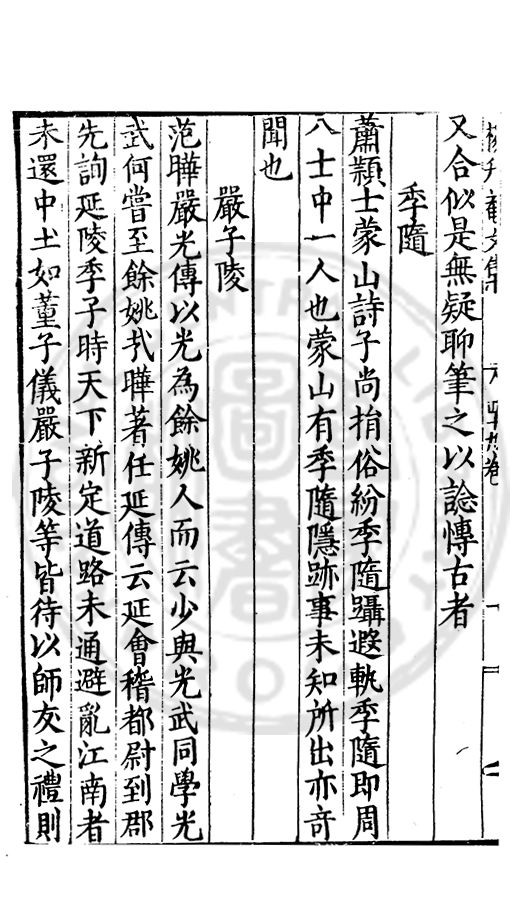 又合似是無疑聊筆之以諗慱古者
季隨
蕭穎士蒙山詩子尚捐俗紛季隨躡遐軌季隨即周
八士中一人也蒙山有季隨隱跡事未知所出亦奇
聞也
嚴子陵
范曄嚴光傳以光為餘姚人而云少與光武同學光
武何嘗至餘姚㢤曄著任延傳云延會稽都尉到郡
先詢延陵季子時天下新定道路未通避亂江南者
未還中土如董子儀嚴子陵等皆待以師友之禮則